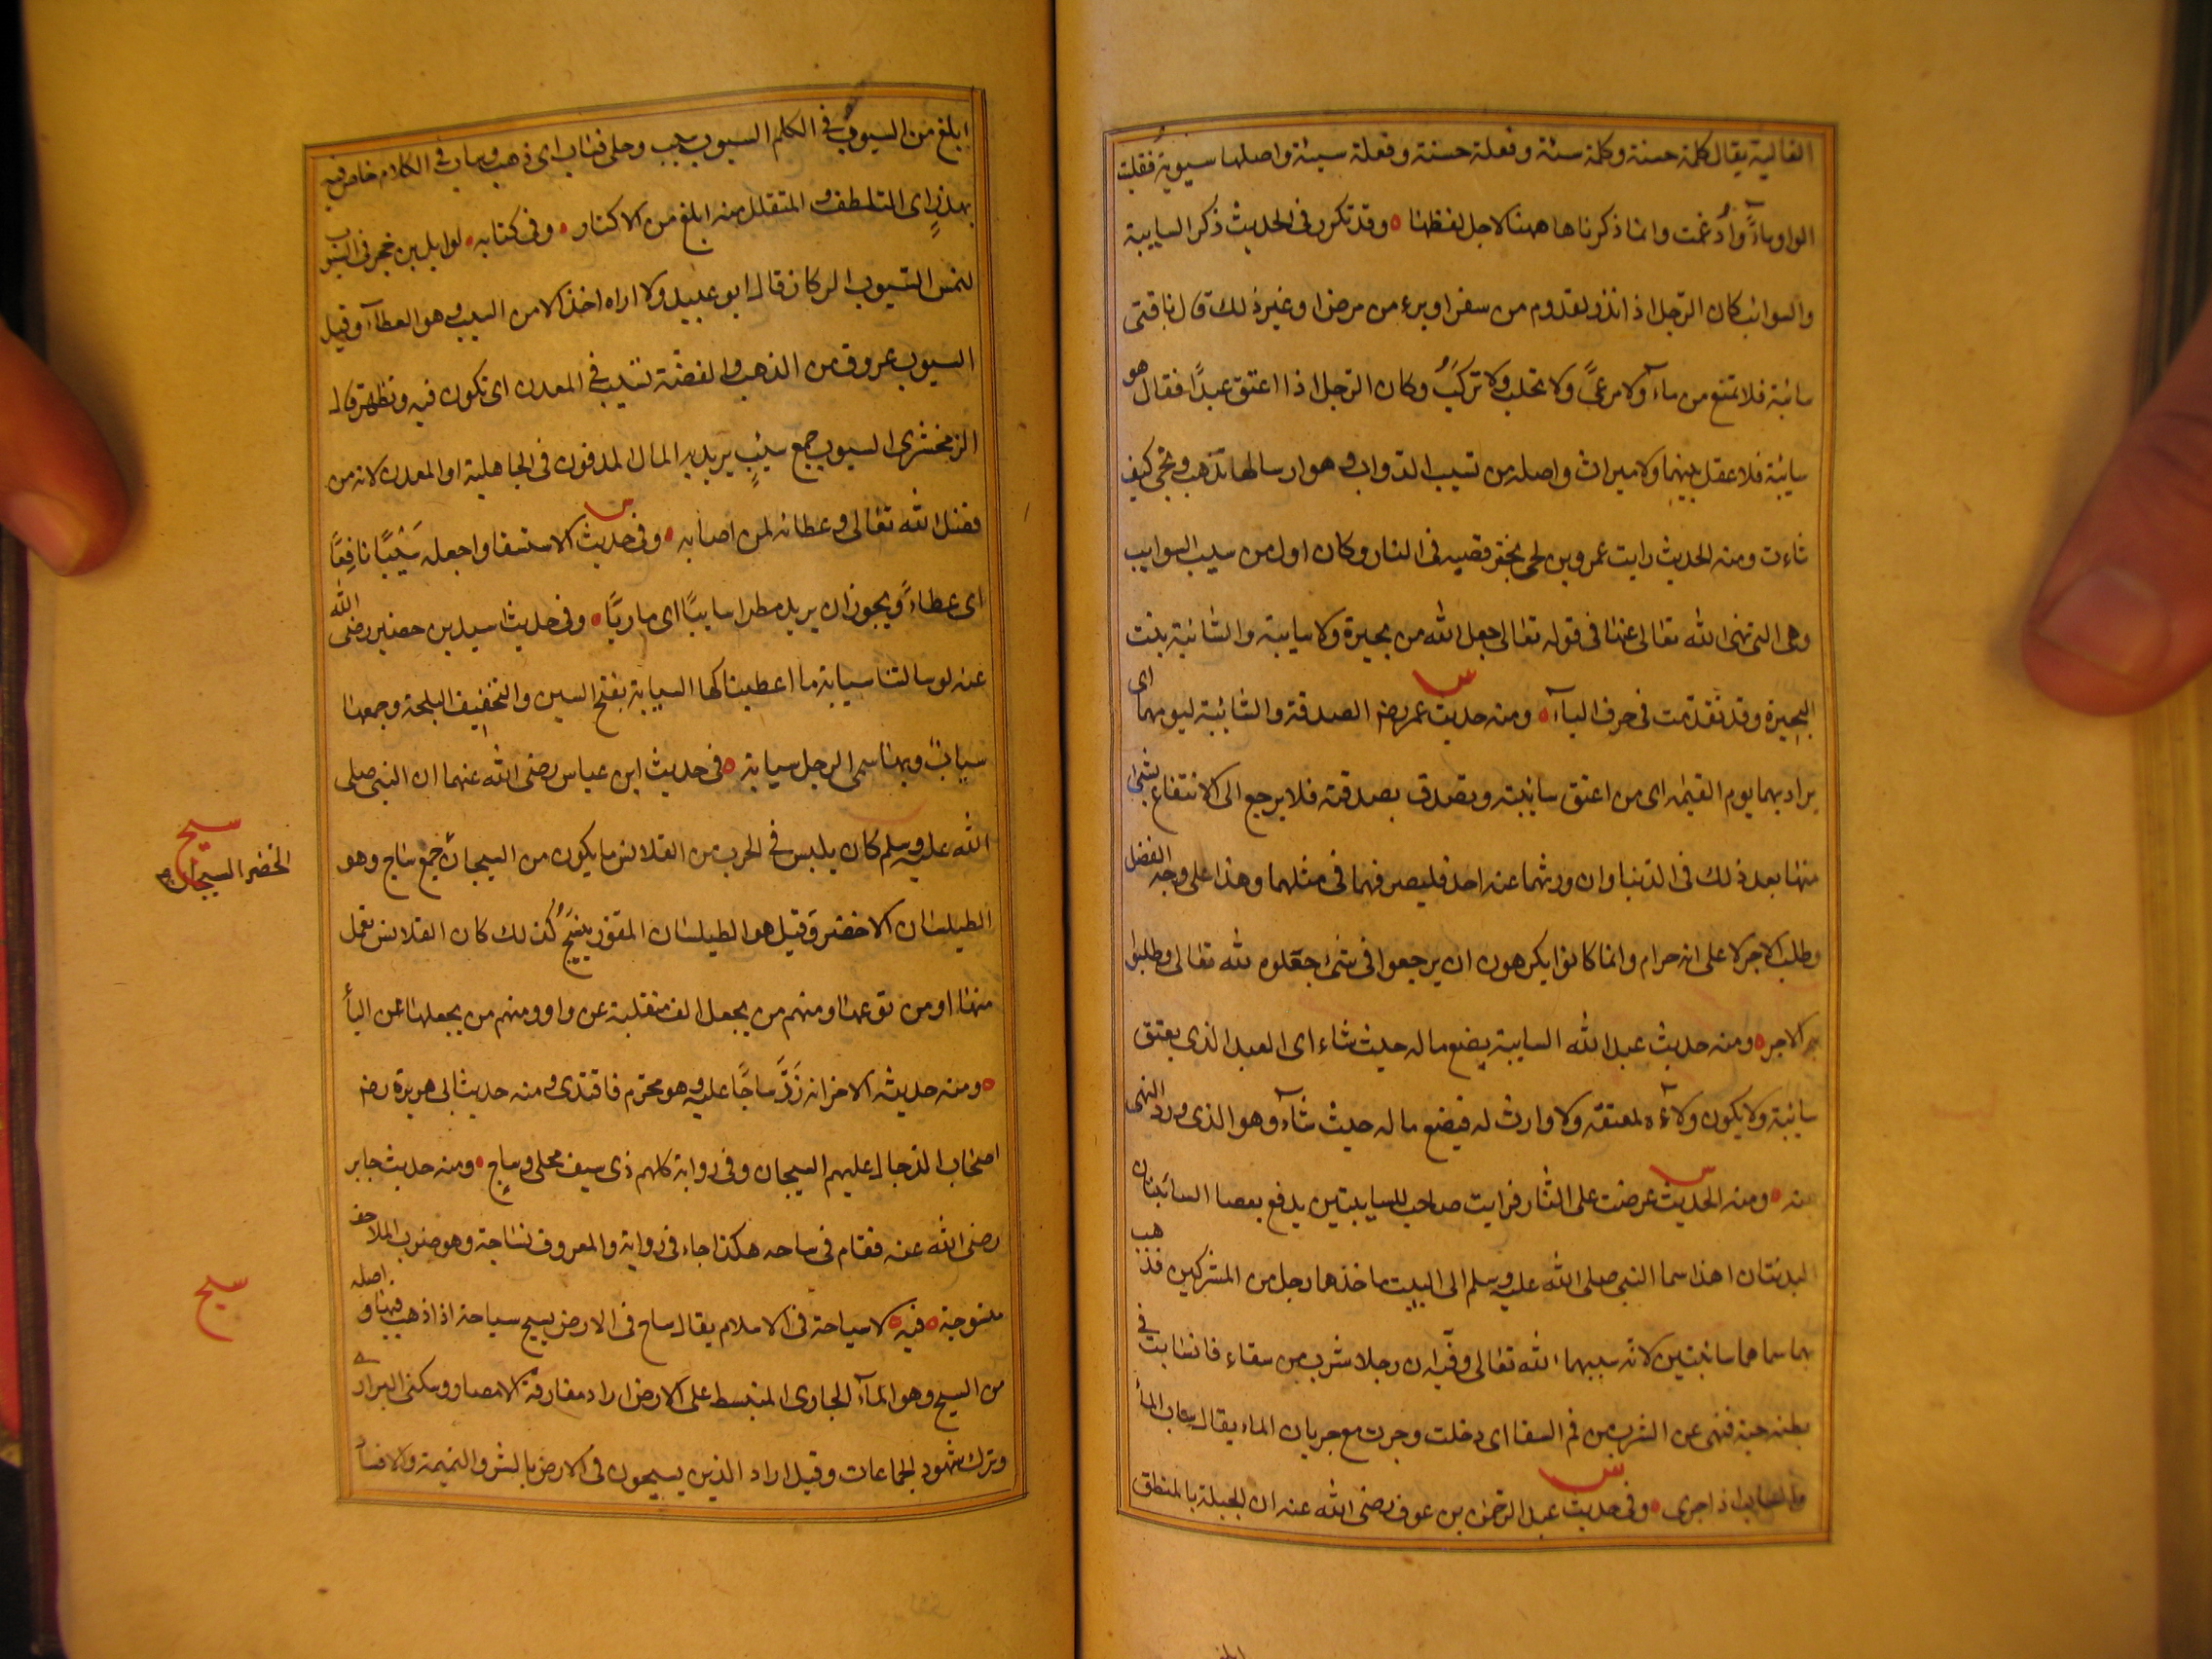 الغالبة يقال كلمة حسنة وكلمة سيئة وفعلة حسنة وفعلة سيئة واصلها سيوية فقلبت
الواو ياءً وأدغمت وانما ذكرناها ههنا لاجل لفظها ه وقد تكرر في الحديث ذكر السايبة
والسوائب كان الرجل اذا نذر لقدوم من سفر او برء من مرض او غير ذلك قال ناقتي
سائبة فلا تمنع من ماء ولا مرعىً ولا تحلب ولا تركبُ وكان الرجل اذا اعتق عبدًا فقال هو
سائبة فلا عقل بينهما ولا ميراث واصله من تسيب الدواب وهو ارسالها تذهب وتجئ كيف
شاءت ومنه الحديث رايت عمرو بن لحي يجر قصبه في النار وكان اول من سيب السوايب
وهي التي نهى الله تعالى عنها في قوله تعالى جعل الله من بحيرة ولا سايبة والسائبة بنت
البحيرة وقد تقدمت في حرف الباء ه ومنه حديث عمر رضه الصدقة والسائبة ليومهما اى
يراد بهما يوم القيمه اى من اعتق سايبته وتصدق بصدقته فلا يرجع الى الانتفاع بشئ
منها بعد ذلك في الدنيا وان ورثهما عنه احد فليصرفهما في مثلهما وهذا على وجه الفضل
وطلب الاجر لا على انه حرام وانما كانوا يكرهون ان يرجعوا في شئ جعلوه لله تعالى وطلبوا
به الاجر ه ومنه حديث عبد الله السايبة يضع ماله حيث شاء اى العبد الذى يعتق
سائبة ولا يكون ولاءه لمعتقه ولا وارث له فيضع ماله حيث شاء وهو الذى ورد النهى
عنه ه ومنه الحديث عرضت على النار فرايت صاحب السايبتين يدفع بعصا السائبتان
البدنتان اهداهما النبي صلى الله عليه وسلم الى البيت فاخذهما رجل من المشركين فذهب
بهما سماهما سائبتين لانه سيبهما الله تعالى وفيه ان رجلا شرب من سقاء فانسابت في
بطنه حية فنهى عن الشرب من فم السقا اى دخلت وجرت مع جريان الماء يقال ساب الماء
وانساب اذا جرى ه وفي حديث عبد الرحمن بن عوف رضى الله عنه ان الحيلة بالمنطق
ابلغ من السيوب في الكلم السيوب سيب وخلى فساب اى ذهب وساب في الكلام خاض فيه
بهذر اى التلطف والتقلل منه ابلغ من الاكثار ه وفي كتابه لوايل بن حجر في السيوب
الخمس السيوب الركاز قال ابو عبيد ولا اراه اخذ الا من السيب وهو العطاء وقيل
السيوب عروق من الذهب والفضة تسيب في المعدن اى تكون فيه وتظهر قال
الزمخشرى السيوب جمع سيبٍ يريد به المال المدفون في الجاهلية او المعدن لانه من
فضل الله تعالى وعطائه لمن اصابه ه وفي حديث الاستسقا واجعله سَيْبًا نافِعًا
اى عطاءً ويجوز ان يريد مطرا سايبًا اى جاريًا ه وفي حديث اسيد بن حضير رضى الله
عنه لو سالتنا سيابة ما اعطيناكها السيابة بفتح السين والتخفيف البلحة وجمعها
سيابٌ وبها سمى الرجل سيابة ه في حديث ابن عباس رضى الله عنهما ان النبي صلى
الله عليه وسلم كان يلبس في الحرب من القلانس ما يكون من السيجان جمع ساج وهو
الطيلسان الاخضر وقيل هو الطيلسان المقور ينسج كذلك كان القلانس تعمل
منها او من نوعها ومنهم من يجعل الفه منقلبة عن واو ومنهم من يجعلها عن الياء
ه ومنه حديثه الاخر انه زَرَّ ساجًا عليه وهو محرم فافتدى ومنه حديث ابى هريرة رضه
اصحاب الدجال عليهم السيجان وفي رواية كلهم ذى سيف محلى وساج ه ومنه حديث جابر
رضى الله عنه فقام في ساجه هكذا جاء في رواية والمعروف نساجة وهو ضرب الملاحف
منسوجة ه فيه ه لا سياحة في الاسلام يقال ساح في الارض يسيح سياحة اذا ذهب فيها واصله
من السيح وهو الماء الجارى المنبسط على الارض اراد مفارقة الامصار وسكنى البرارى
وترك شهود الجماعات وقيل اراد الذين يسيحون في الارض بالشر والنميمة والافساد
سيج
الخضر السيجان
سيح